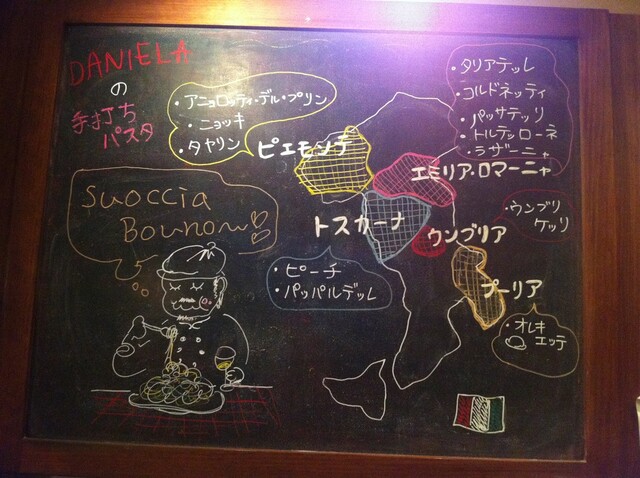 DANIELA
の
手打ち
パスタ
・アニョロッティ・デル・プリン
・ニョッキ
・タヤリン
ピエモンテ
・タリアテッレ
・コルドネッティ
・パッサテッリ
・トルテッローネ
・ラザーニャ
エミリア・ロマーニャ
suoccia
Bounou
トスカーナ
・ピーチ
・パッパルデッレ
ウンブリア
・ウンブリ
ケッリ
プーリア
・オレキ
エッテ